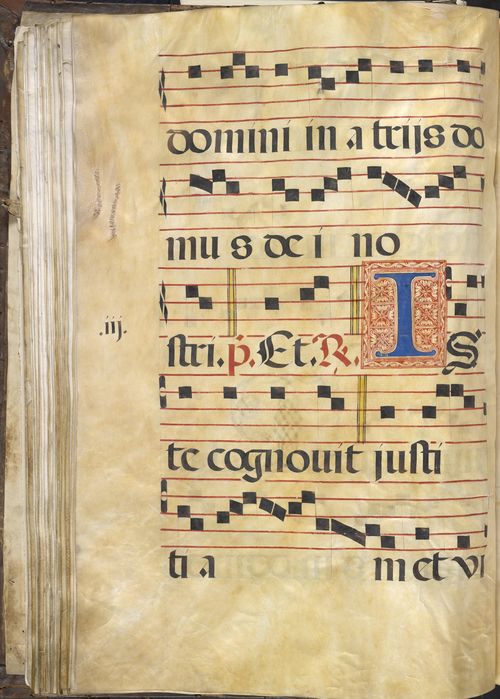 domini in atrijs do
mus dei no
.iij.
stri. p̃. Et. R̃. IS
te cognovit justi
tiam et vi